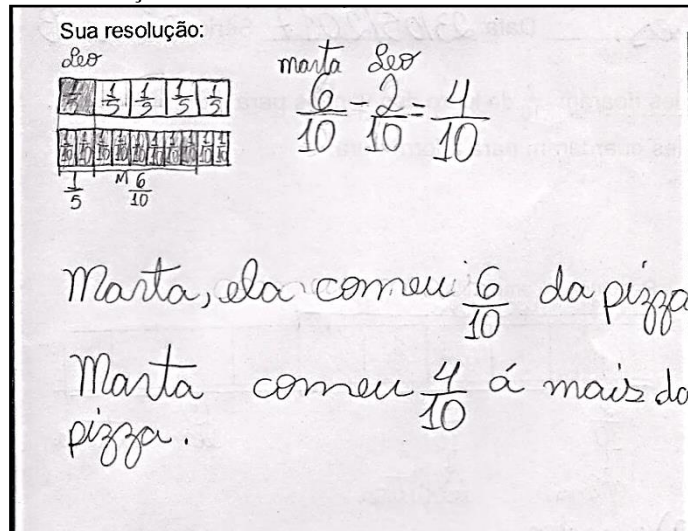 Sua resolução:
Leo
1/5 1/5 1/5 1/5 1/5
1/10 1/10 1/10 1/10 1/10 1/10 1/10 1/10 1/10 1/10
1/5 M 6/10
marta Leo
6/10 - 2/10 = 4/10
Marta, ela comeu 6/10 da pizza
Marta comeu 4/10 á mais da
pizza.